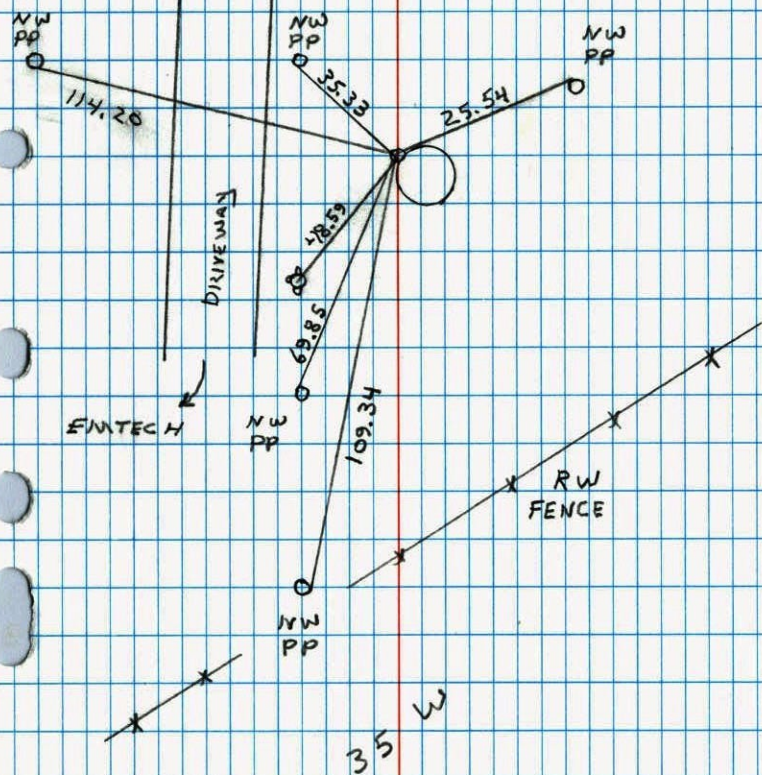 NW
PP
NW
PP
NW
PP
114.20
35.33
25.54
DRIVEWAY
48.59
69.85
109.34
EMTECH
NW
PP
RW
FENCE
NW
PP
35 W